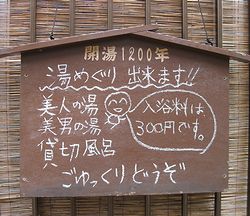 開湯1200年
湯めぐり出来ます!!
美人の湯
美男の湯
入浴料は
300円です。
貸切風呂
ごゆっくりどうぞ